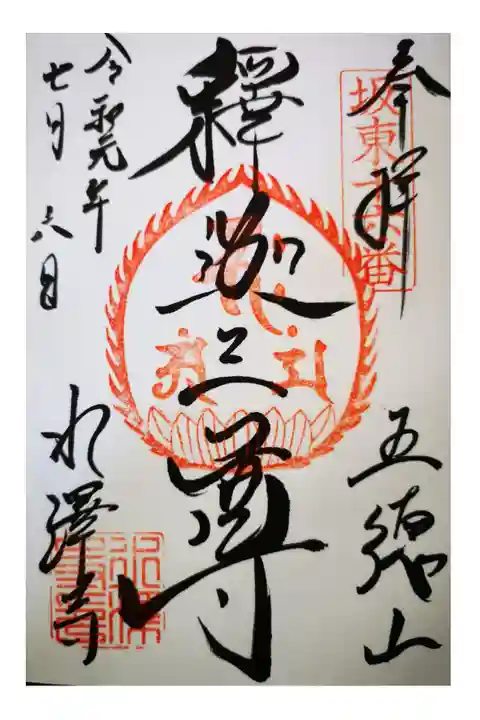 奉拝
坂東十六番
五徳山
釋迦三尊
令和元年
七月六日
水澤寺